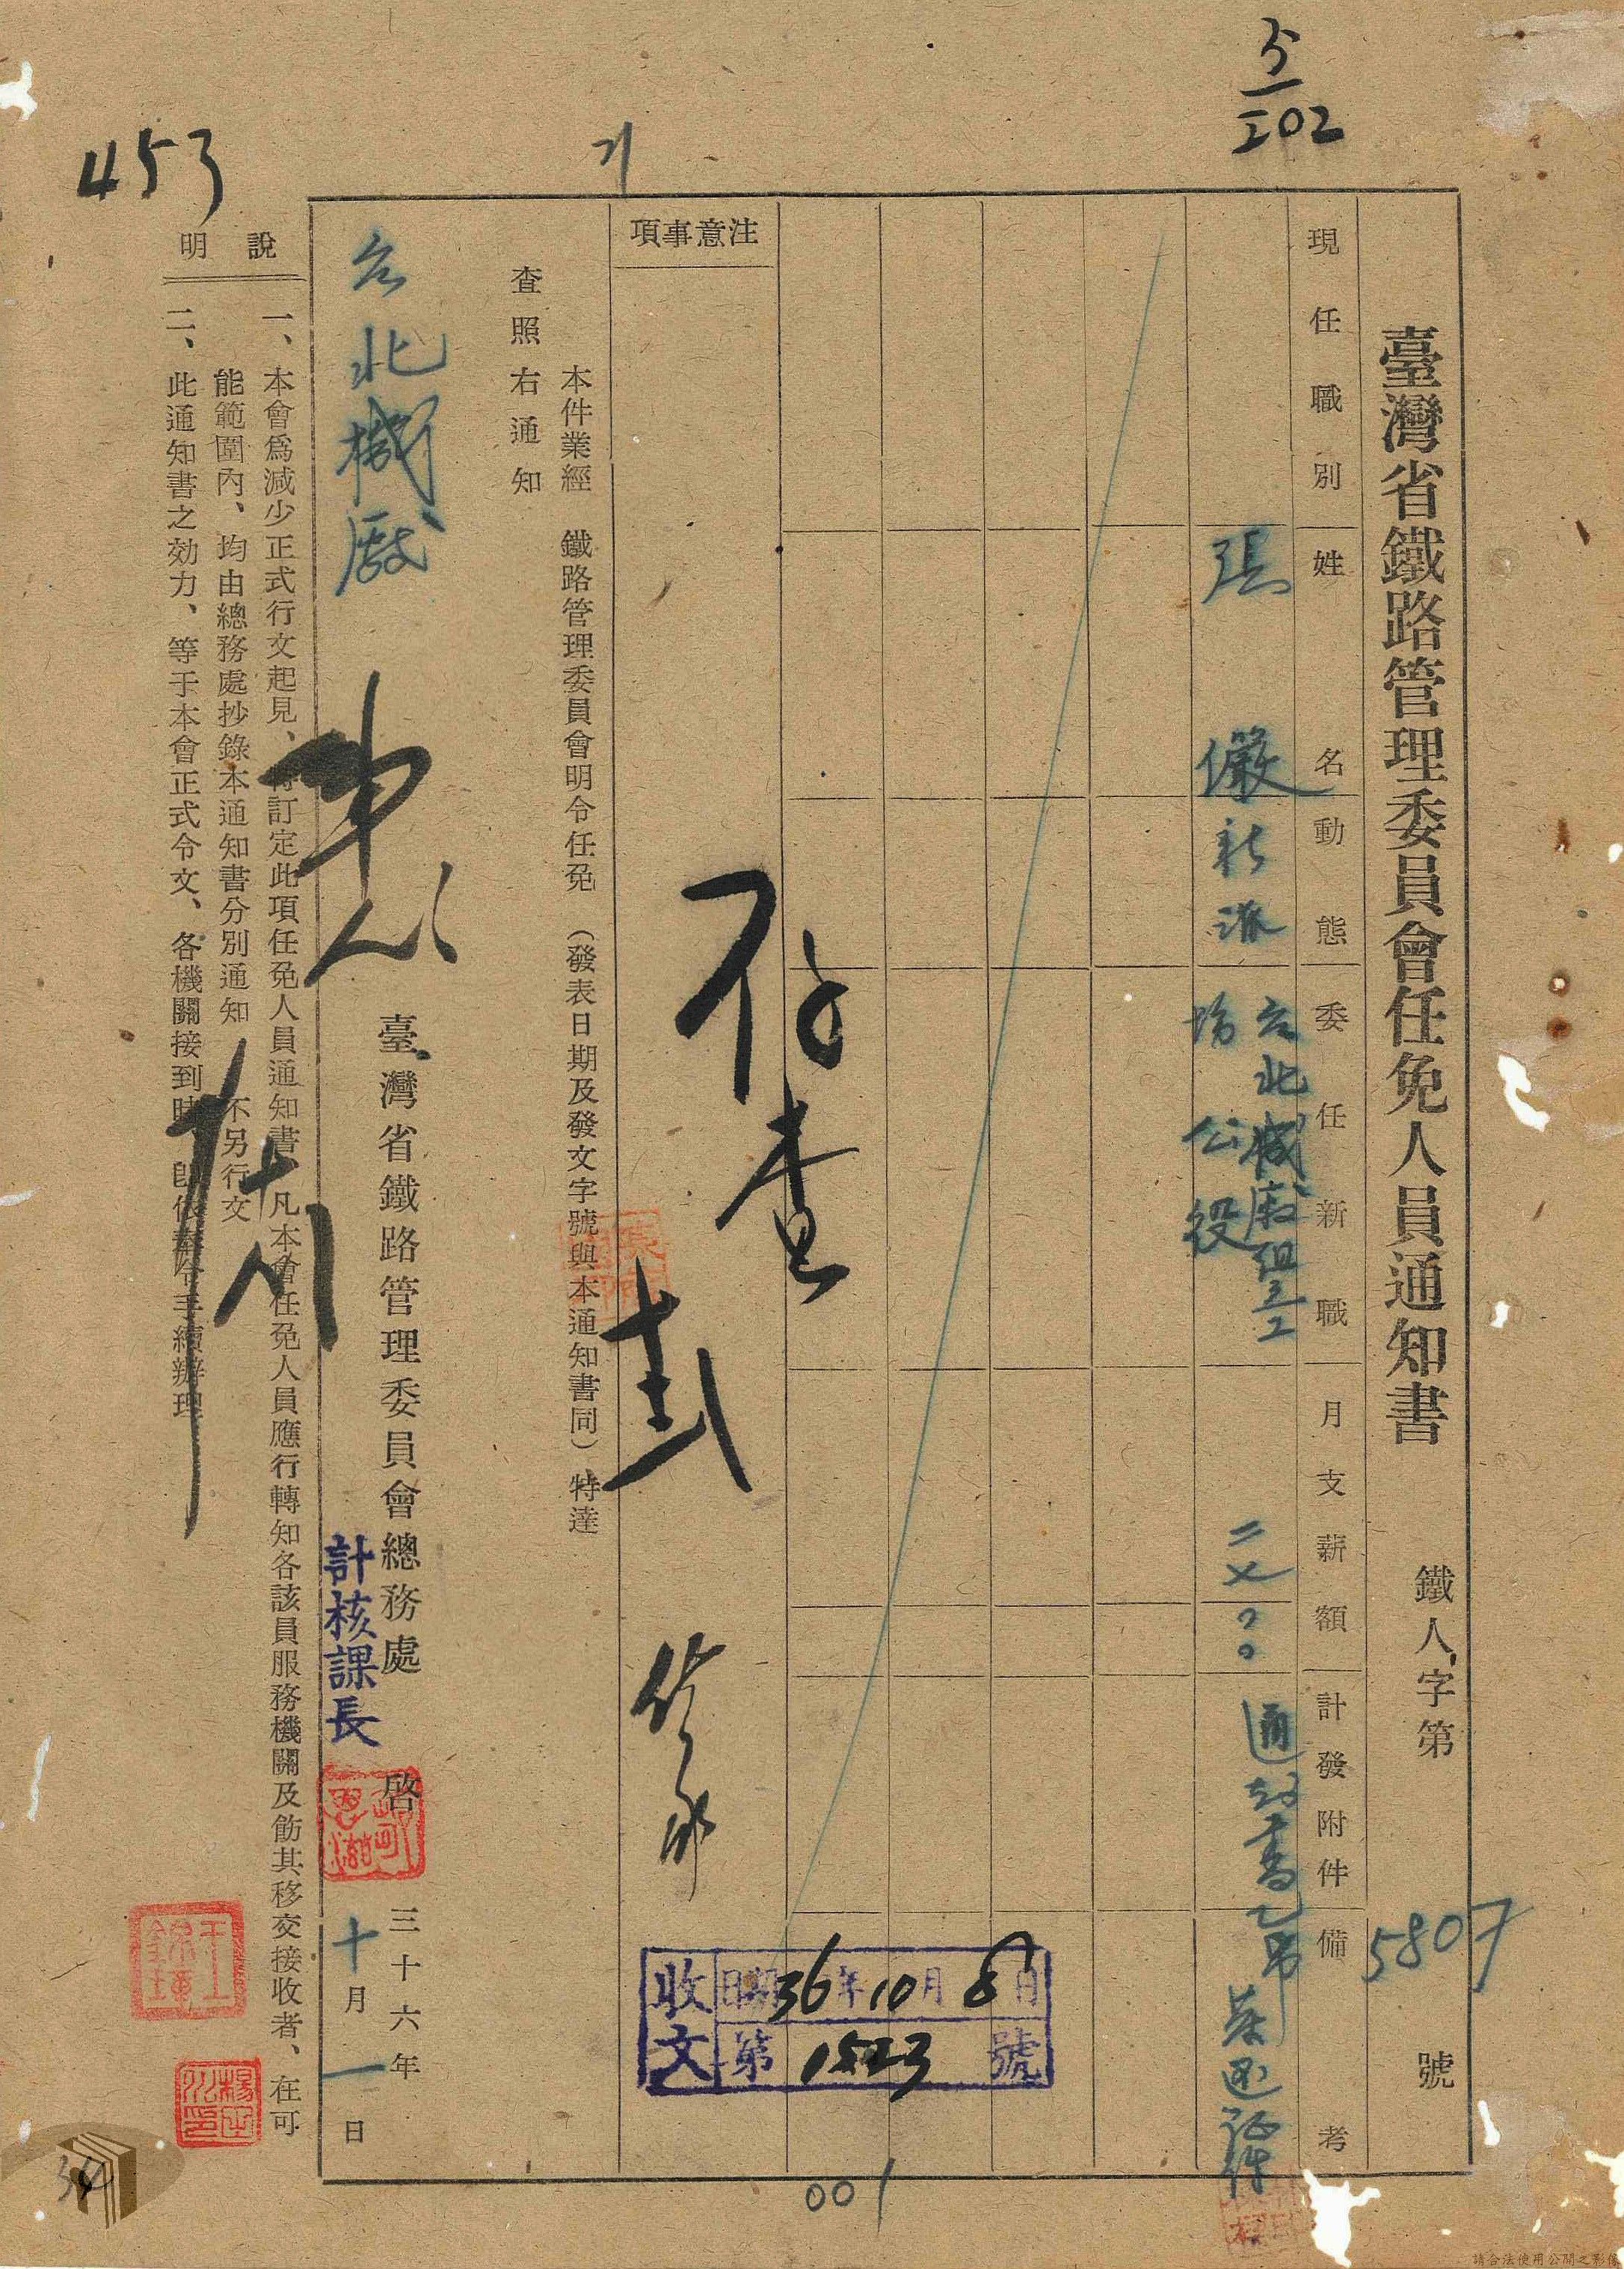 臺灣省鐵路管理委員會任免人員通知書 鐵人字第5807號
現任職別 姓名 動態 委任新職 月支薪額 計發附件 備考
張儼 新派 台北機廠組立工場公役 通知書乙吊 發還証件
注意事項
存查
本件業經 鐵路管理委員會明令任免(發表日期及發文字號與本通知書同)特達
查照右通知
台北機廠
臺灣省鐵路管理委員會總務處 啓 三十六年
計核課長
十月一日
說明
一、本會爲減少正式行文起見、特訂定此項任免人員通知書 凡本會任免人員應行轉知各該員服務機關及飭其移交接收者、在可
能範圍內、均由總務處抄錄本通知書分別通知 不另行文
二、此通知書之効力、等于本會正式令文、各機關接到時 卽依奉令手續辦理
收文 日期36年10月8日
第1523號
453
5/202
001
請合法使用公開之影像